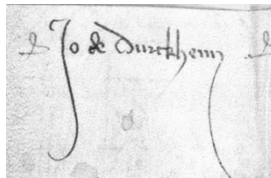 Jo de Durckheim